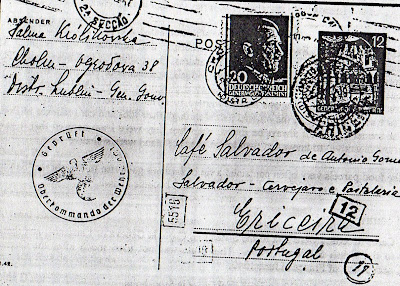 2ª SECÇÃO
ABSENDER
Salma Królikowska
Cholm - Ogrodowa 38
Distr. Lublin - Gen. Gouv.
POS
20
DEUTSCHES REICH
GENERALGOUVERNEMENT
12
Geprüft
Oberkommando der Wehrmacht
Café Salvador de Antonio Gomes
Salvador - Cervejaro e Pastelaria
5518
Ericeira
12
Portugal